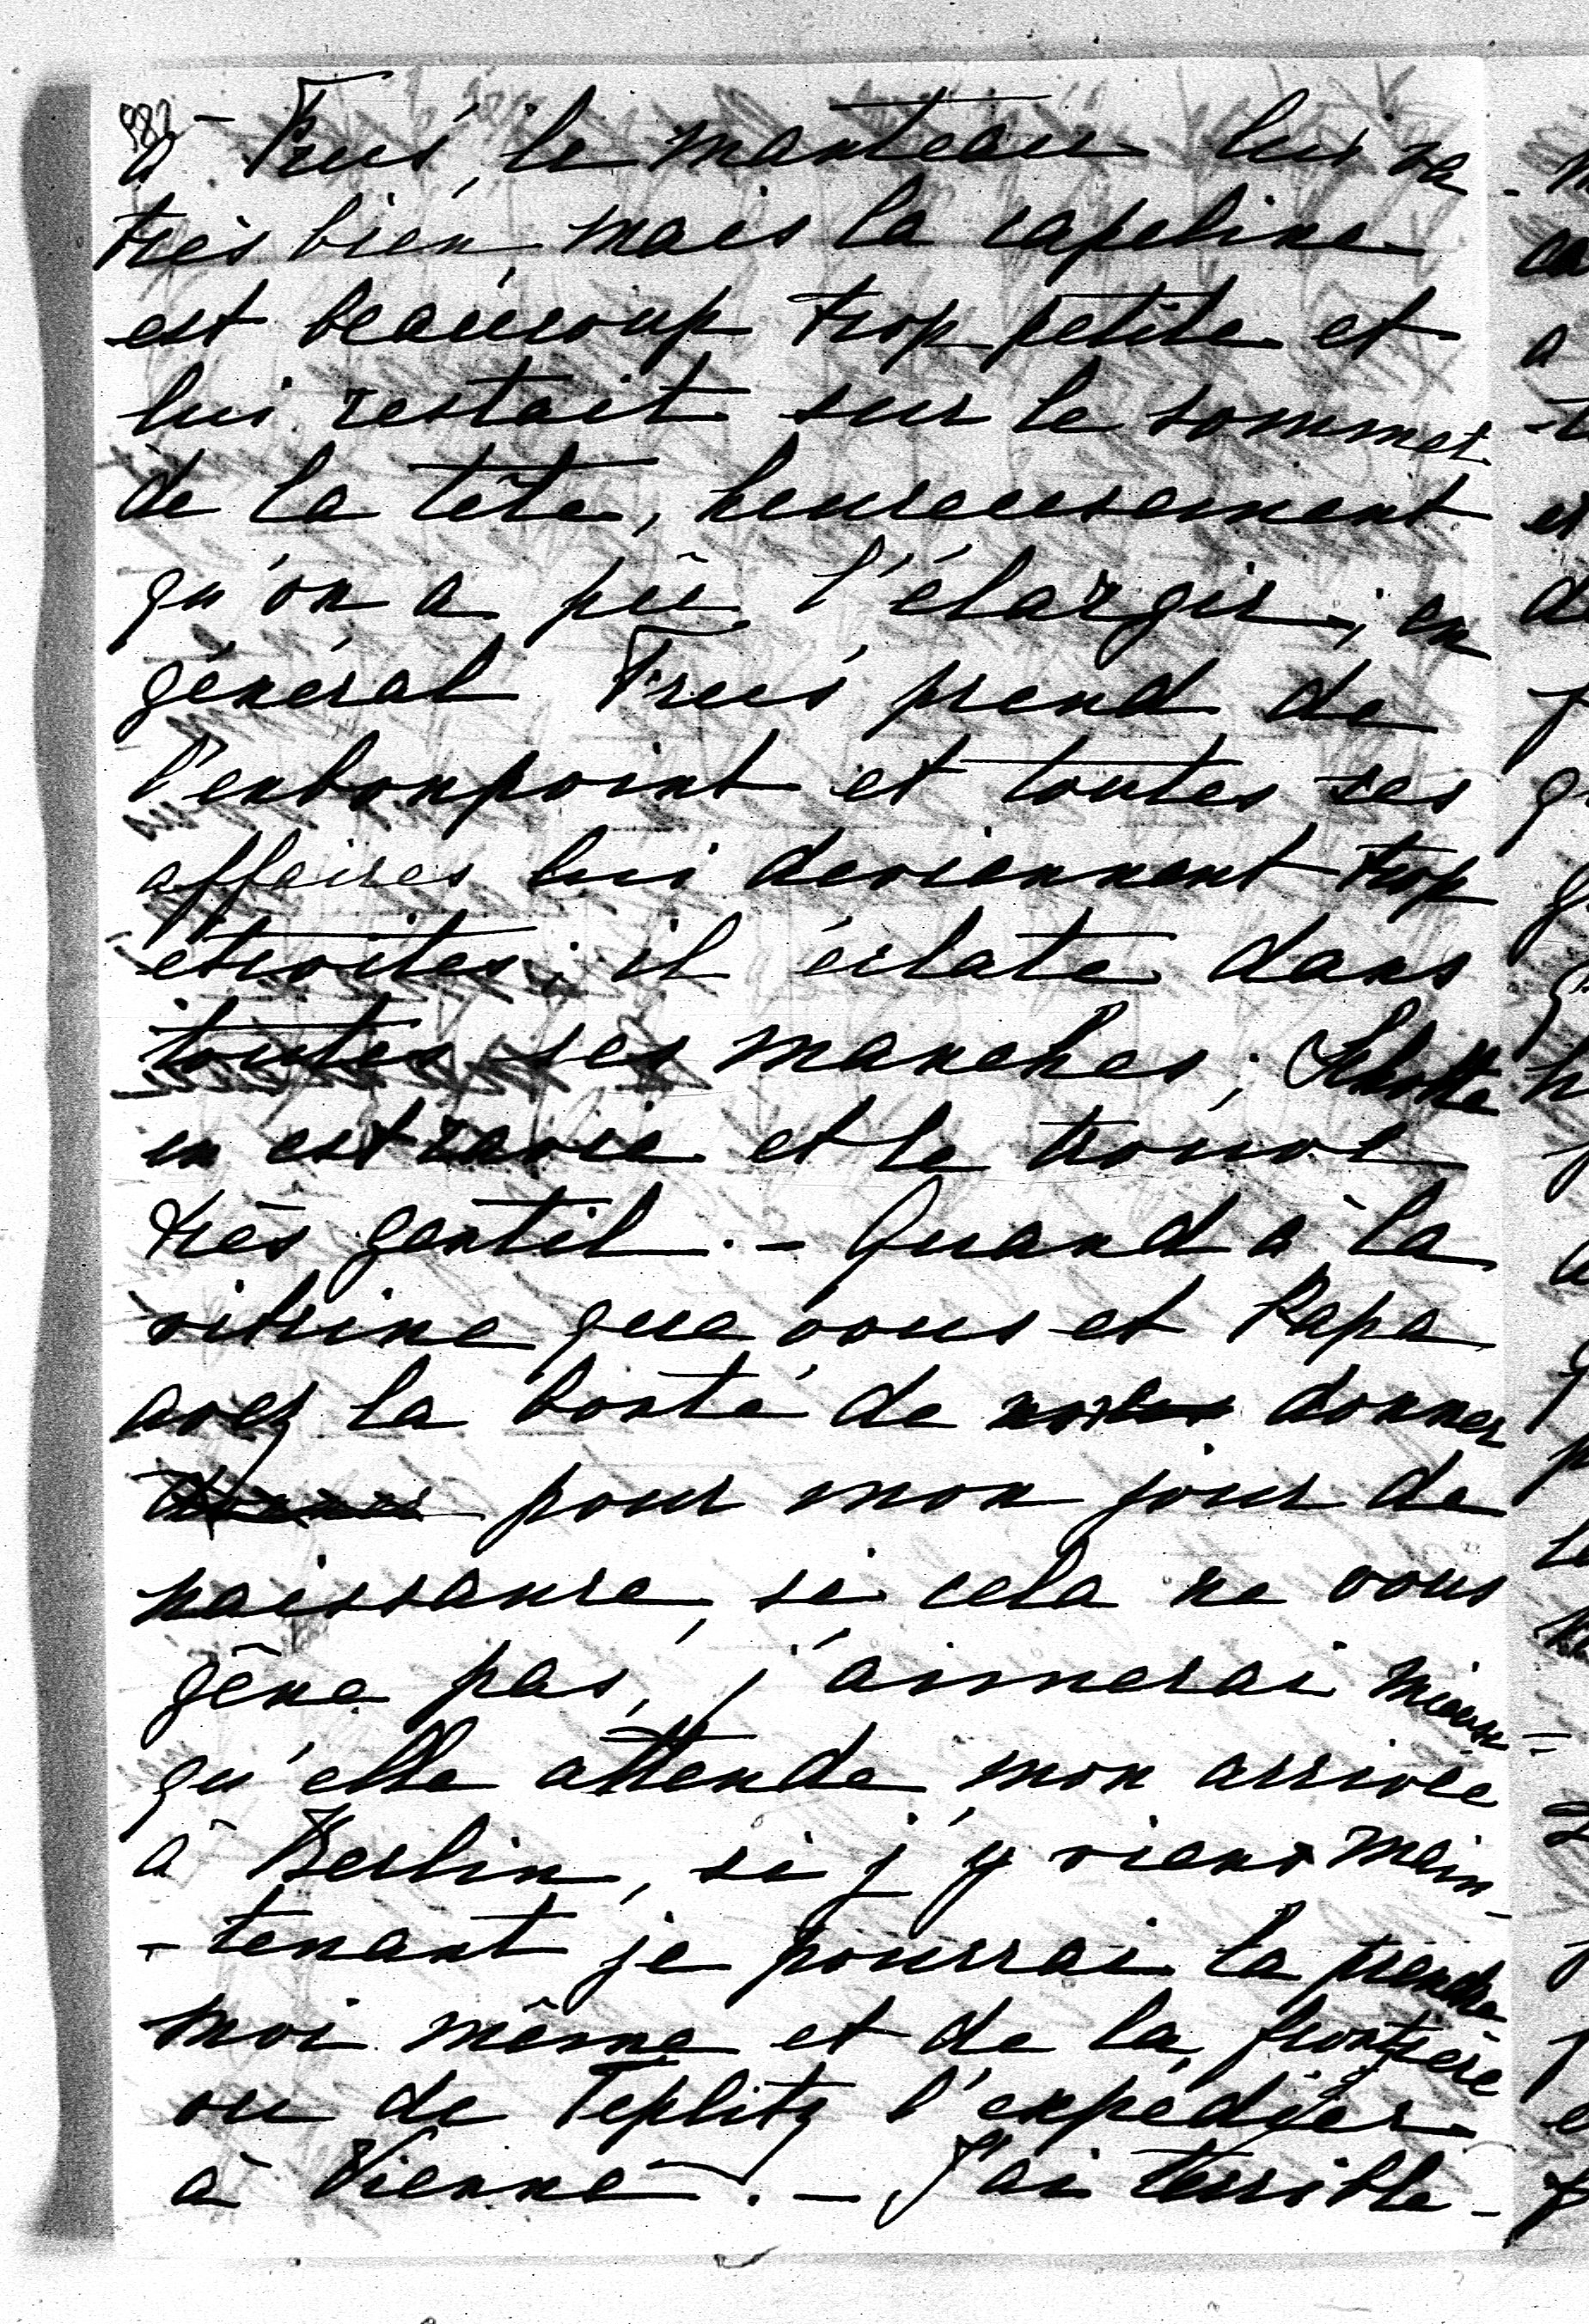 à Früs, le manteau lui va
très bien, mais la capeline
est beaucoup trop petite et
lui restait sur le sommet
de la tête, heureusement
qu'on a pû l'élargir; en
général Früs prend de
l'enbonpoint et toutes ses
affaires lui deviennent trop
étroites; il éclate dans
toutes ses manches;
en est ravie et le trouve
très gentil. - Quand à la
vitrine que vous et Papa
avez la bonté de donner
pour mon jour de
naissance, si cela ne vous
gêne pas, j'aimerai mieux
qu'elle attende mon arrivée
à Berlin, si j'y viens main-
-tenant je pourrai la prendre
moi même et de la frontière
ou de Teplitz l'expédier
à Vienne. - J'ai terrible-